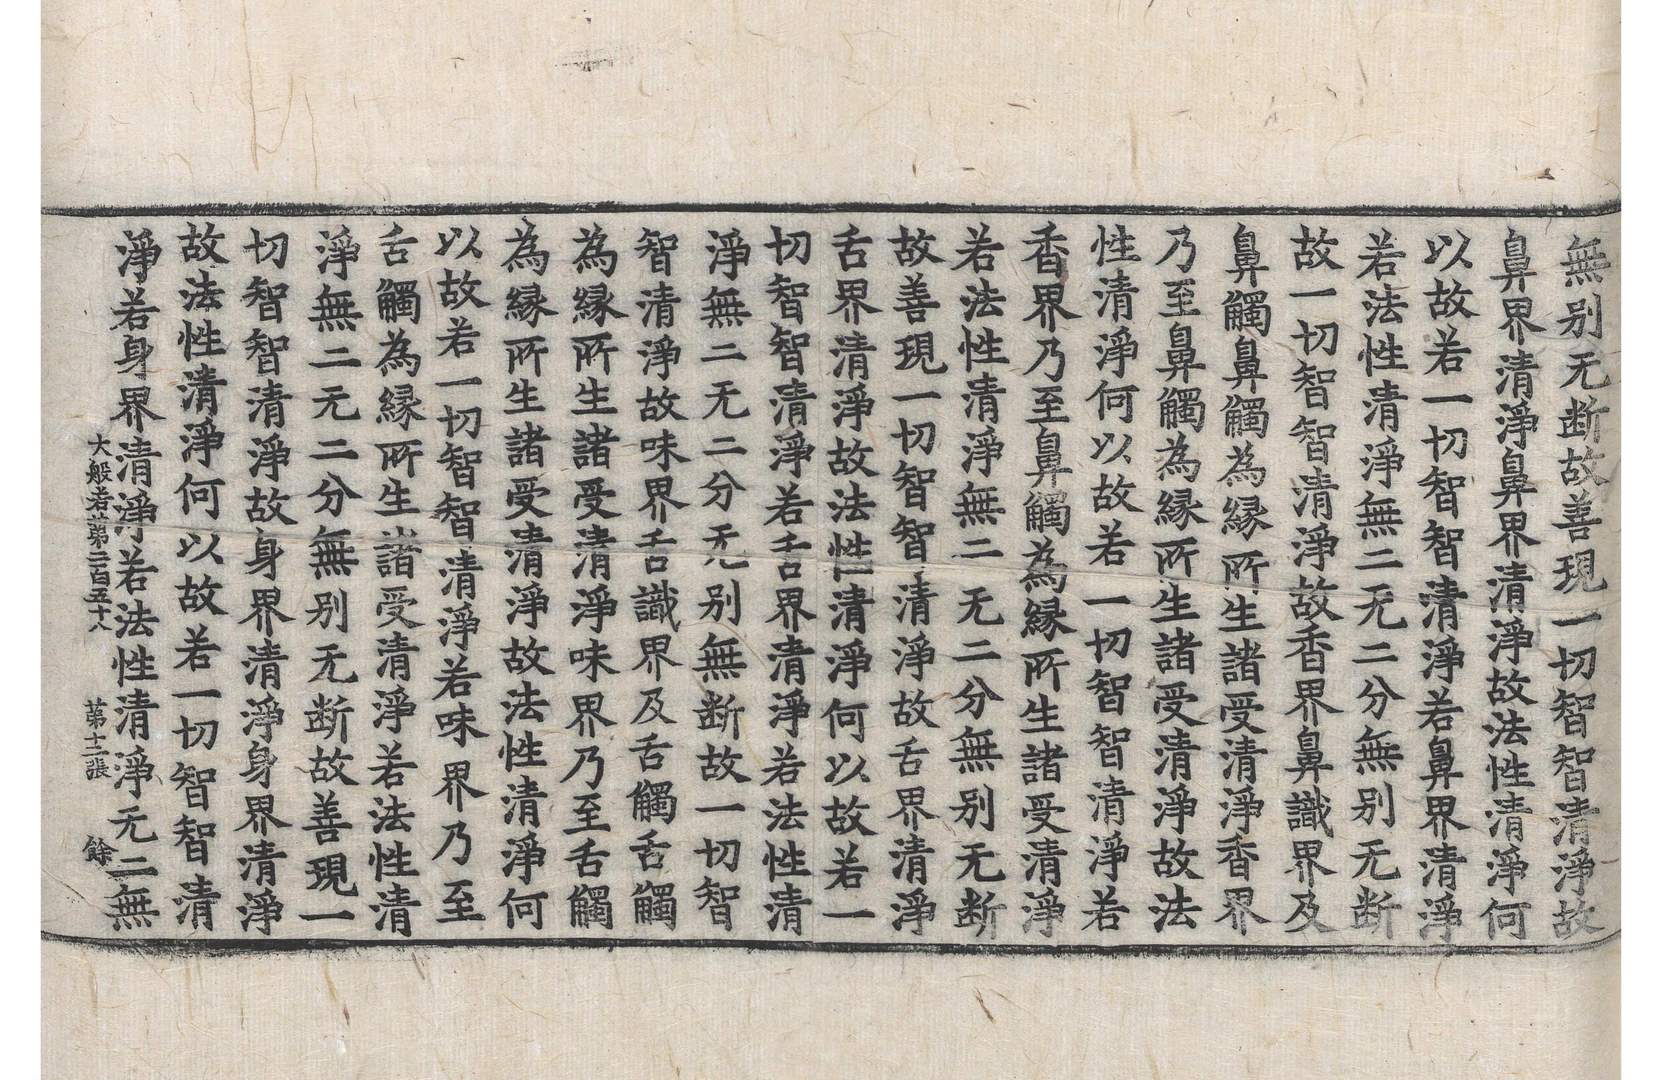 無别无断故善現一切智智清淨故
鼻界清淨鼻界清淨故法性清淨何
以故若一切智智清淨若鼻界清淨
若法性清淨無二无二分無别无断
故一切智智清淨故香界鼻識界及
鼻觸鼻觸為緣所生諸受清淨香界
乃至鼻觸為緣所生諸受清淨故法
性清淨何以故若一切智智清淨若
香界乃至鼻觸為緣所生諸受清淨
若法性清淨無二无二分無别无断
故善現一切智智清淨故舌界清淨
舌界清淨故法性清淨何以故若一
切智智清淨若舌界清淨若法性清
淨無二无二分无别無断故一切智
智清淨故味界舌識界及舌觸舌觸
為緣所生諸受清淨味界乃至舌觸
為緣所生諸受清淨故法性清淨何
以故若一切智智清淨若味界乃至
舌觸為緣所生諸受清淨若法性清
淨無二无二分無别无断故善現一
切智智清淨故身界清淨身界清淨
故法性清淨何以故若一切智智清
淨若身界清淨若法性清淨无二無
大般若第二百五十八 第十二張 餘